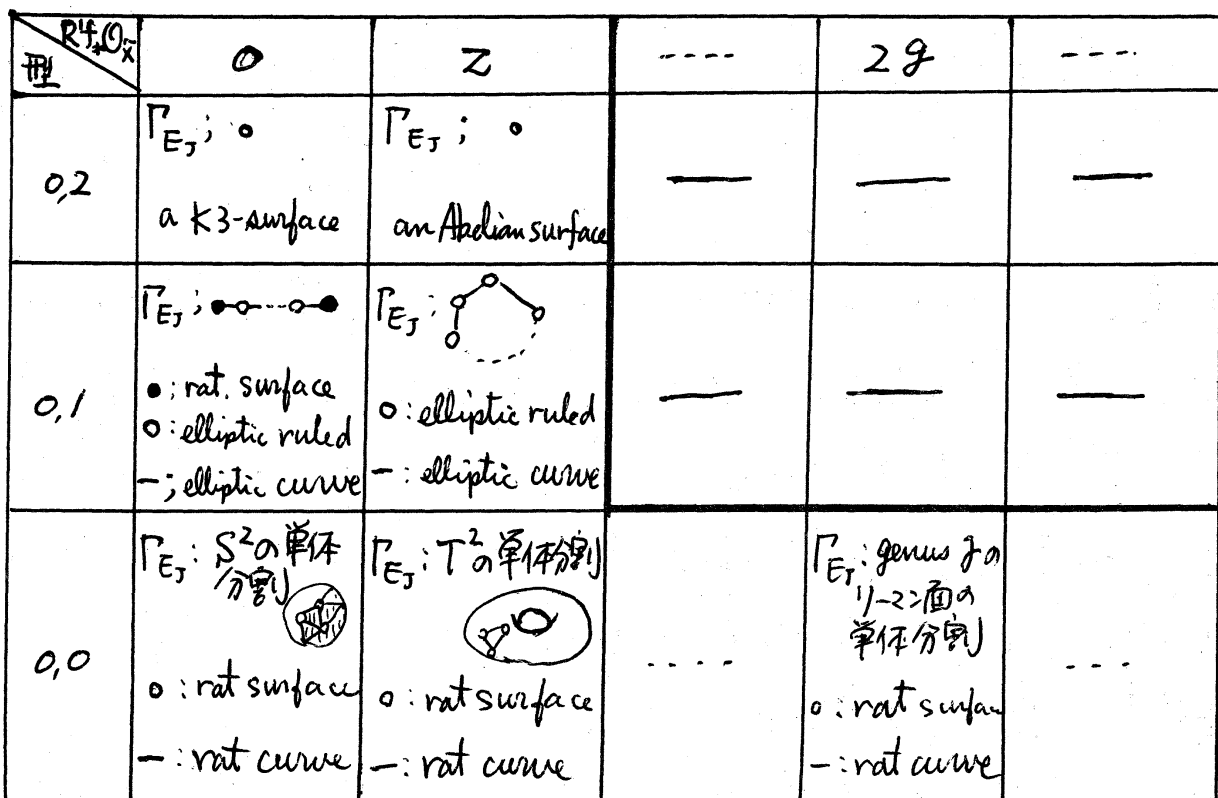 R¹f_*O_X̃
型
0
2
----
2g
----
0,2
Γ_{E_J}; o
a K3-surface
Γ_{E_J}; o
an Abelian surface
—
—
—
0,1
Γ_{E_J};
●; rat. surface
o: elliptic ruled
—; elliptic curve
Γ_{E_J}:
o: elliptic ruled
—: elliptic curve
—
—
—
0,0
Γ_{E_J}: S²の単体
分割
o: rat surface
—: rat curve
Γ_{E_J}: T²の単体分割
o: rat surface
—: rat curve
----
Γ_{E_J}: genus gの
リーマン面の
単体分割
o: rat surface
—: rat curve
---